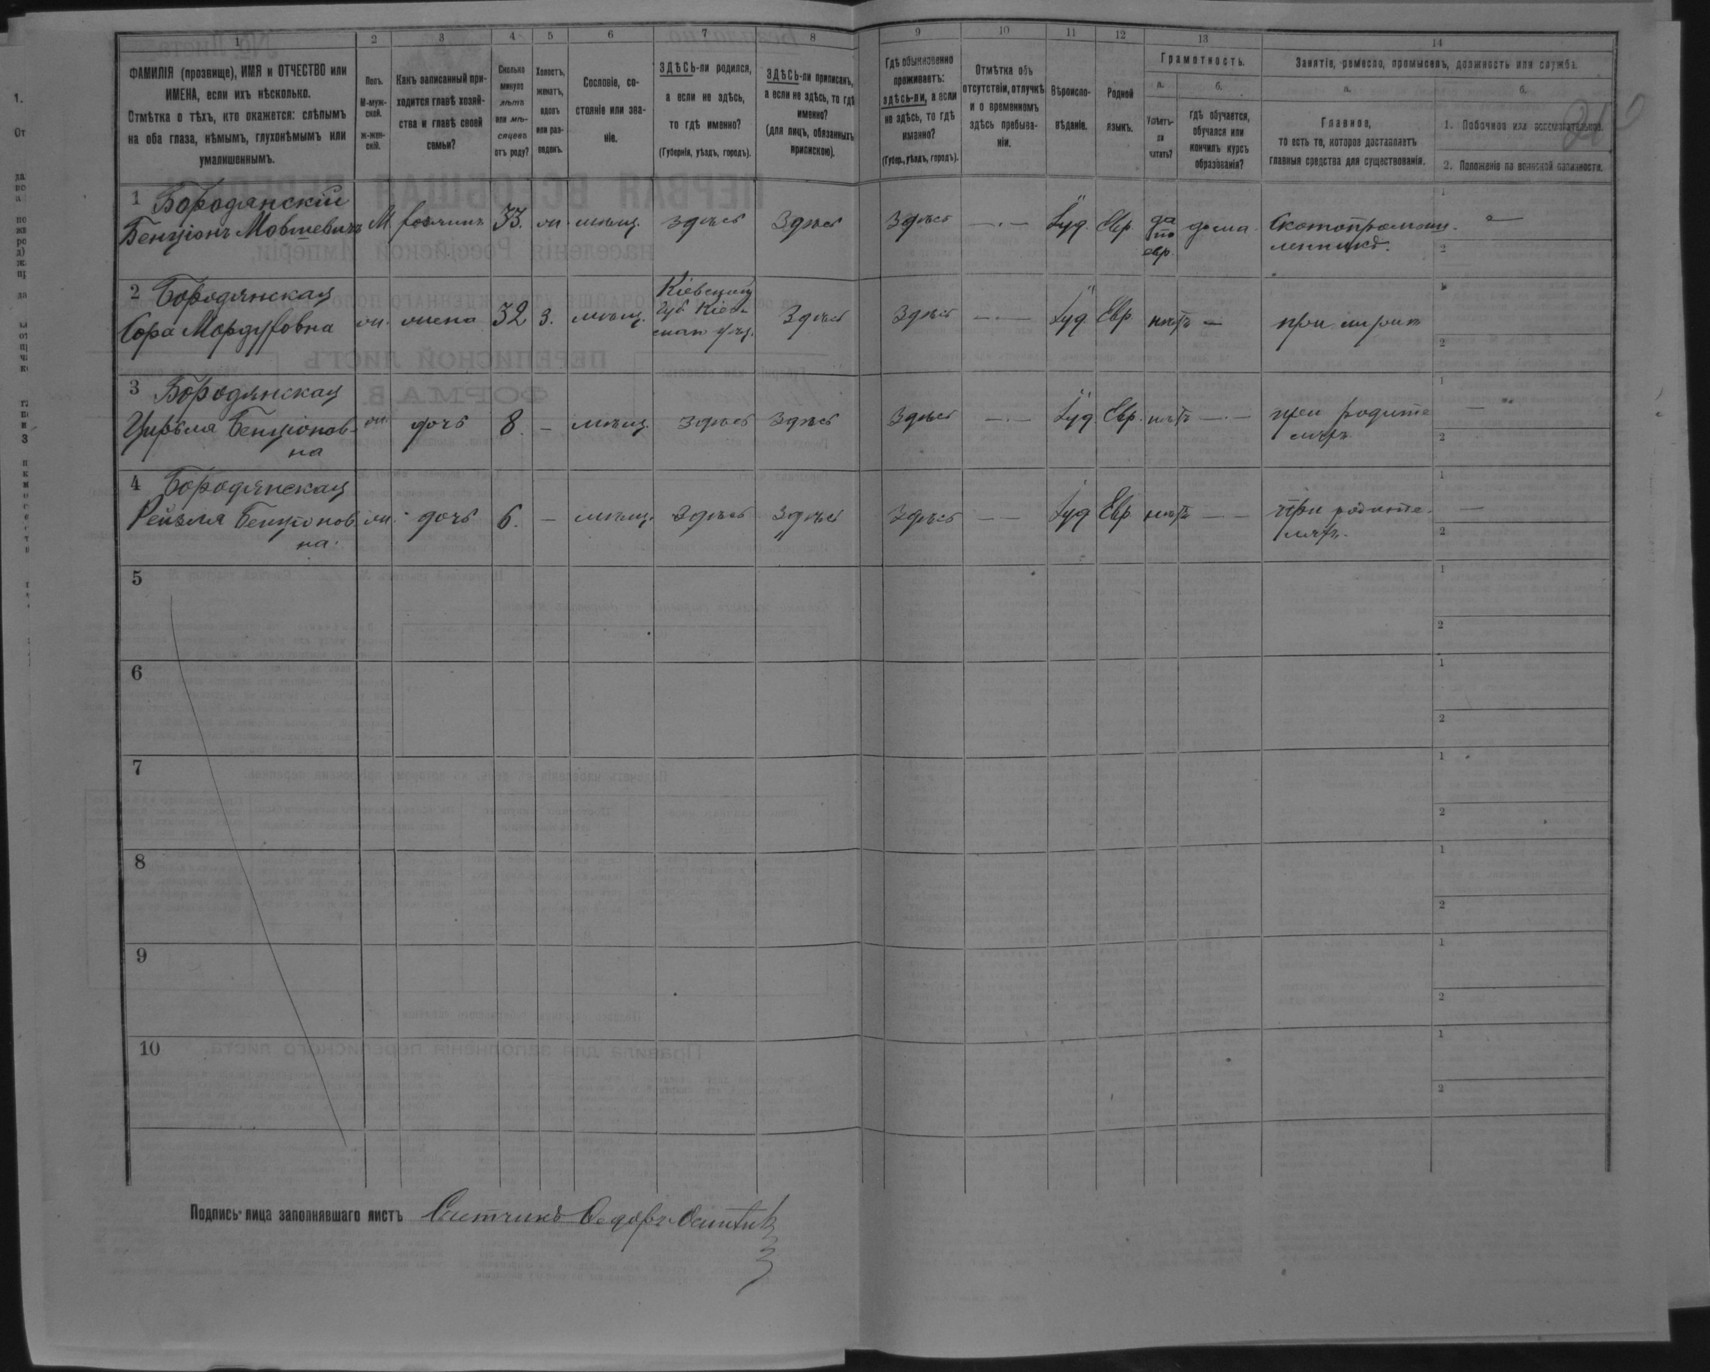 1
2
3
4
5
6
7
8
ФАМИЛІЯ (прозвище), ИМЯ и ОТЧЕСТВО или
ИМЕНА, если ихъ нѣсколько.
Отмѣтка о тѣхъ, кто окажется: слѣпымъ
на оба глаза, нѣмымъ, глухонѣмымъ или
умалишоннымъ.
Полъ.
М-муж-
ской.
Ж-жен-
скій.
Какъ записанный при-
ходится главѣ хозяй-
ства и главѣ своей
семьи?
Сколько
минуло
лѣтъ
или мѣ-
сяцевъ
отъ роду?
Холостъ,
женатъ,
вдовъ
или раз-
веденъ.
Сословіе, со-
стояніе или зва-
ніе.
ЗДѢСЬ-ли родился,
а если не здѣсь,
то гдѣ именно?
(Губернія, уѣздъ, городъ).
ЗДѢСЬ-ли приписанъ,
а если не здѣсь, то гдѣ
именно?
(для лицъ, обязанныхъ
припискою).
9
10
11
12
13
14
Гдѣ обыкновенно
проживаетъ:
здѣсь-ли, а если
не здѣсь, то гдѣ
именно?
(Губер., уѣздъ, городъ).
Отмѣтка объ
отсутствіи, отлучкѣ
и о временномъ
здѣсь пребыва-
ніи.
Вѣроиспо-
вѣданіе.
Родной
языкъ.
Грамотность.
а.
б.
Умѣетъ-
ли
читать?
Гдѣ обучается,
обучался или
кончилъ курсъ
образованія?
Занятіе, ремесло, промыселъ, должность или служба.
а.
б.
Главное,
то есть то, которое доставляетъ
главныя средства для существованія.
1. Побочное или вспомогательное.
2. Положеніе по воинской повинности.
1 Бородянскій
Бенціонъ Мовшевичъ М хозяинъ 33. мѣщ. здѣсь Здѣсь Здѣсь — · — Іуд. Евр. да по евр. дома Скотопромыш-
ленникъ. —
2 Бородянская
Сора Мордуховна жена 32 З. мѣщ. Кіевской
губ Кіев-
скаго уѣз. Здѣсь Здѣсь — · — Іуд. Евр нѣтъ — при мужѣ
3 Бородянская
Цирля Бенціонов-
на дочь 8. — мѣщ. Здѣсь Здѣсь Здѣсь — · — Іуд. Евр. нѣтъ — · — при родите-
ляхъ —
4 Бородянская
Рейзля Бенціонов-
на. дочь 6. — мѣщ. Здѣсь Здѣсь Здѣсь — — Іуд Евр нѣтъ — — при родите-
ляхъ. —
5
6
7
8
9
10
Подпись лица заполнявшаго листъ Счетчикъ